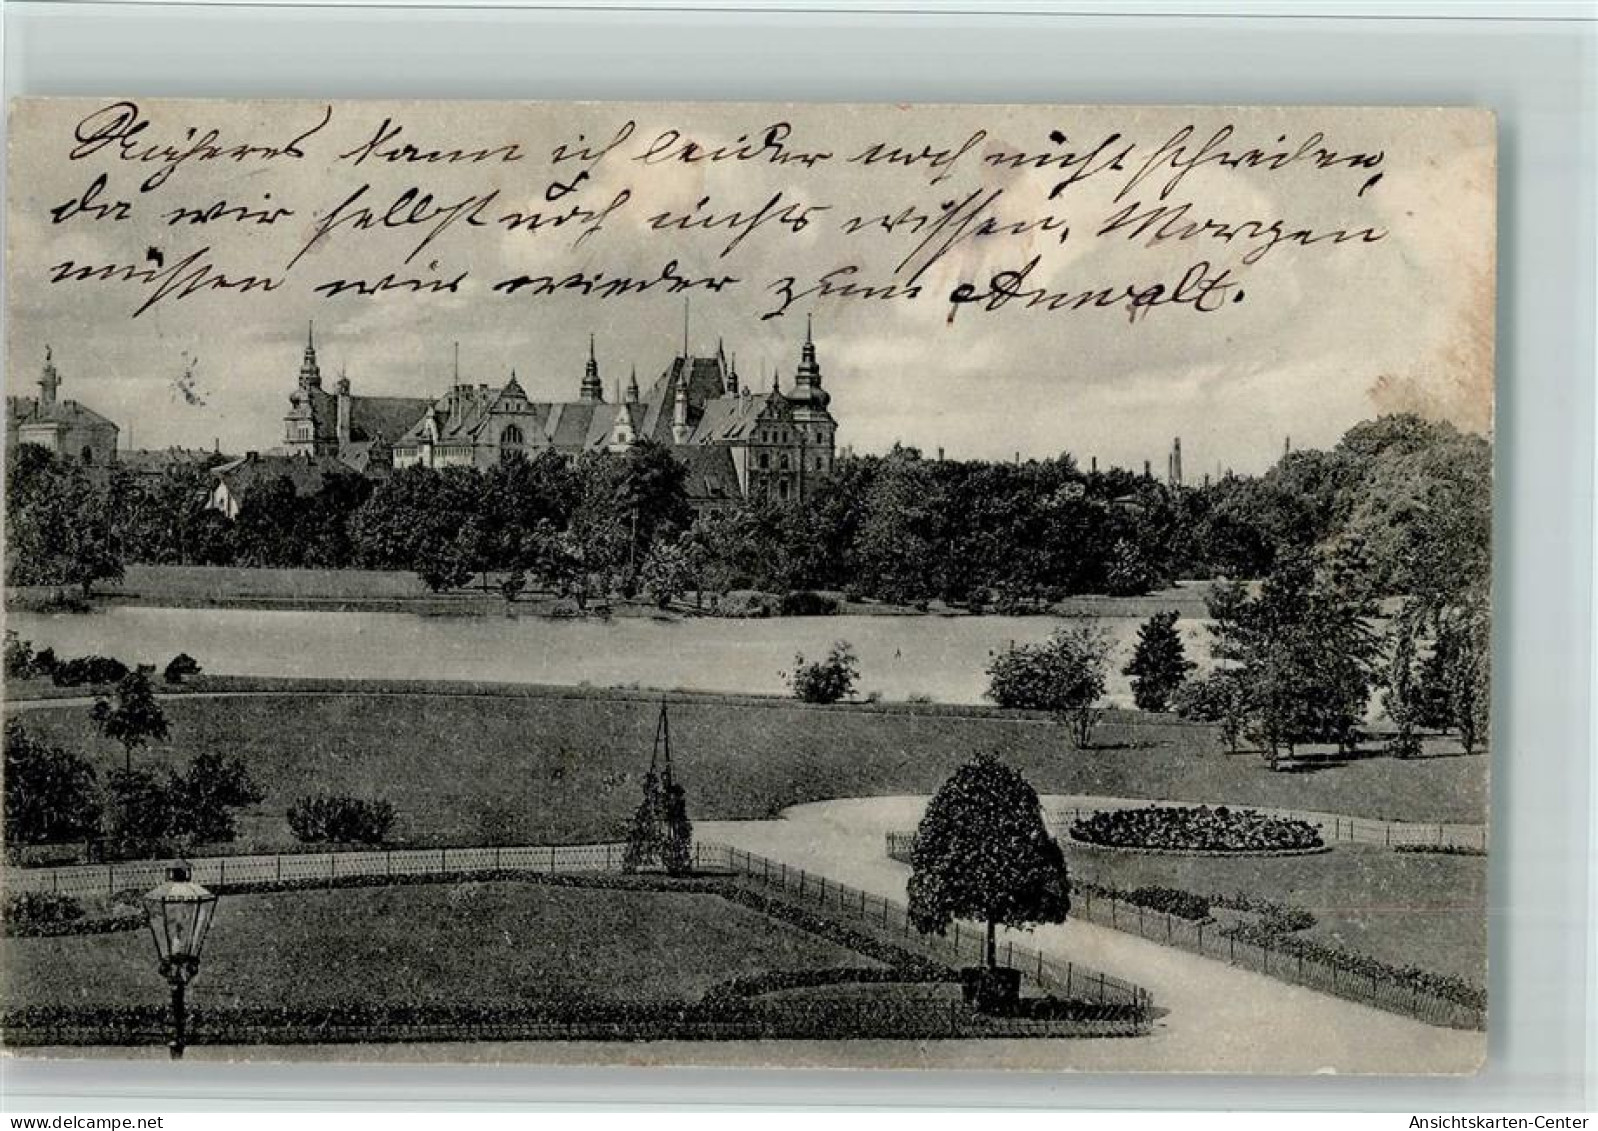 Näheres kann ich leider noch nicht schreiben,
da wir selbst noch nichts wissen. Morgen
müssen wir wieder zum Anwalt.
Ansichtskarten-Center